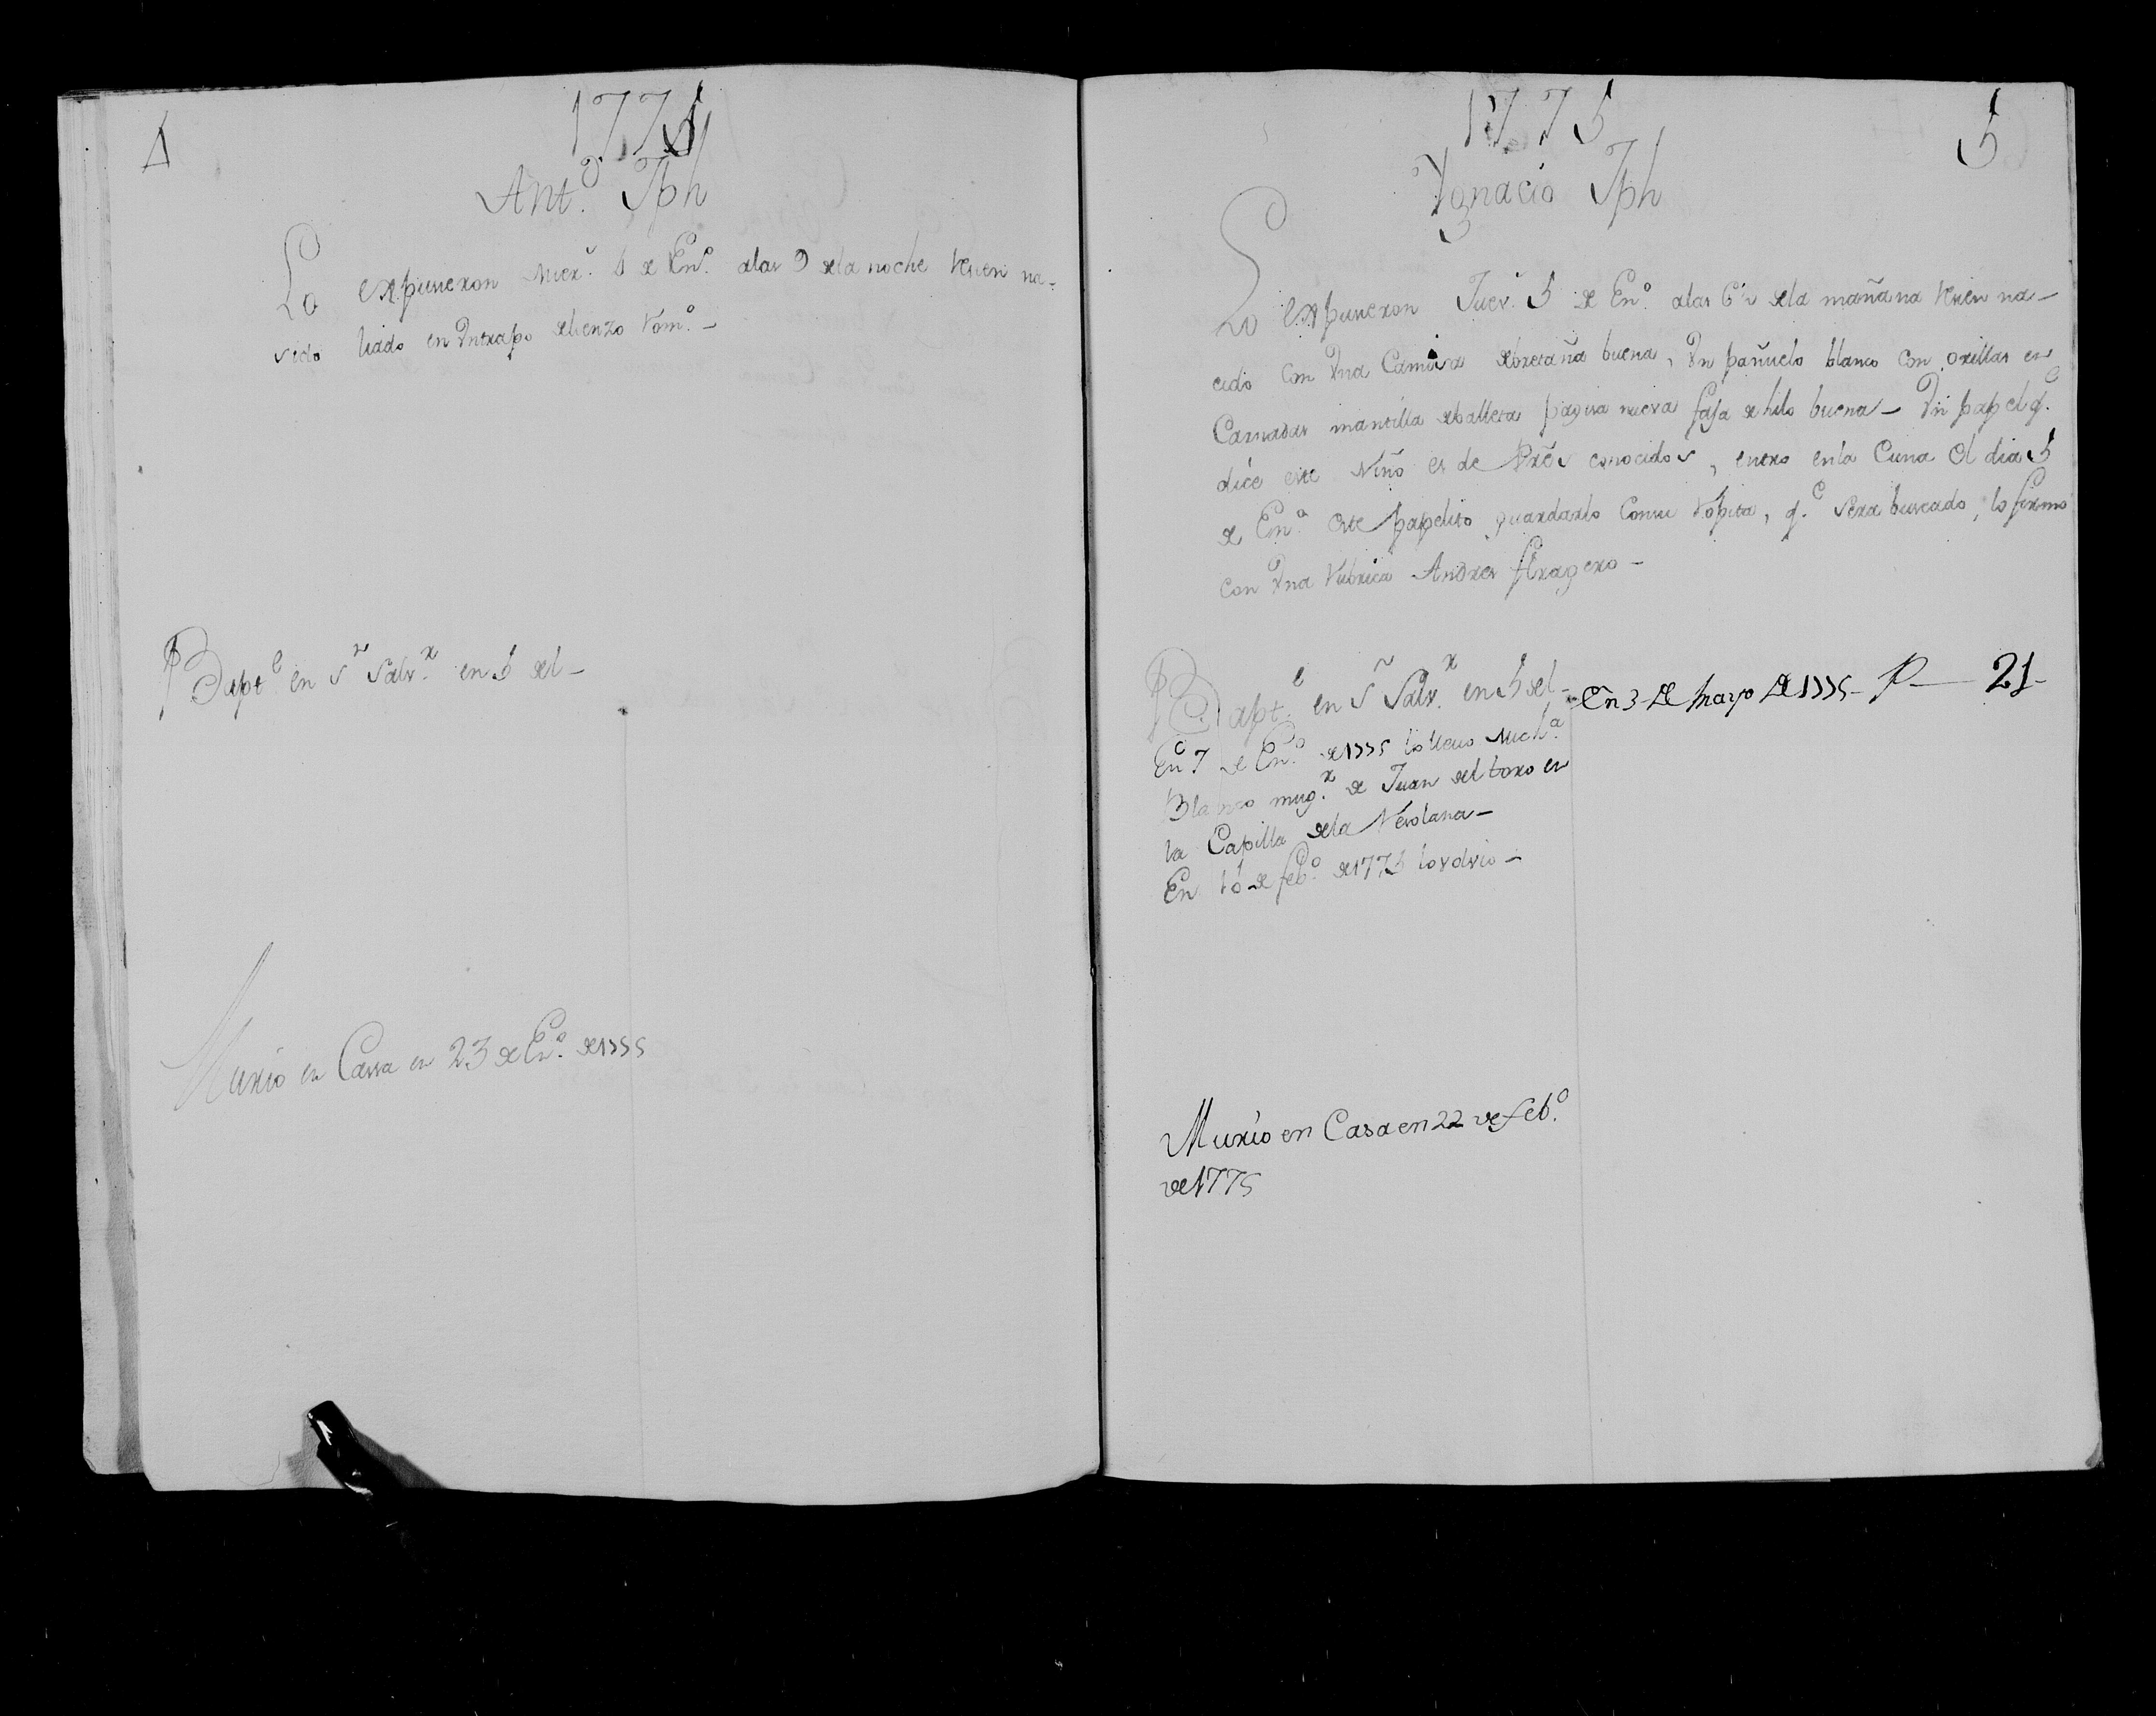 4
1775
Ant.o Jph
Lo expusieron Mier.s 4 de En.o alas 9 dela noche resien na-
sido liado en Vntrapo delienzo rom.o –
Bapt.e en S.r Salv.r en 5 del –
Murio en Cassa en 23 de En.o de 1775
1775
5
Ygnacio Jph
Lo expusieron Juev.s 5 de En.o alas 6 1/2 dela mañana resien na-
cido con Vna Camisa debretaña buena, Vn pañuelo blanco con orillas en
Carnadas mantilla deballeta pagisa nueva faja de hilo buena – Vn papel q.e
dice este Niño es de Pres conocidos, entro enla Cuna el dia 5
de En.o este papelito guardarlo consu ropita, q.e sera buscado, lo firmo
con Vna rubrica Andres
Bapt.e en S.r Salv.r en 5 del –
En 7 de En.o de 1775 lo llevo Mich.a
Blanco mug.r de Juan del toro en
la Capilla dela
En 16 de feb.o de 1775 lo volvio –
En 3 de Mayo de 1775 – P — 21 –
Murio en Casa en 22 de feb.o
de 1775